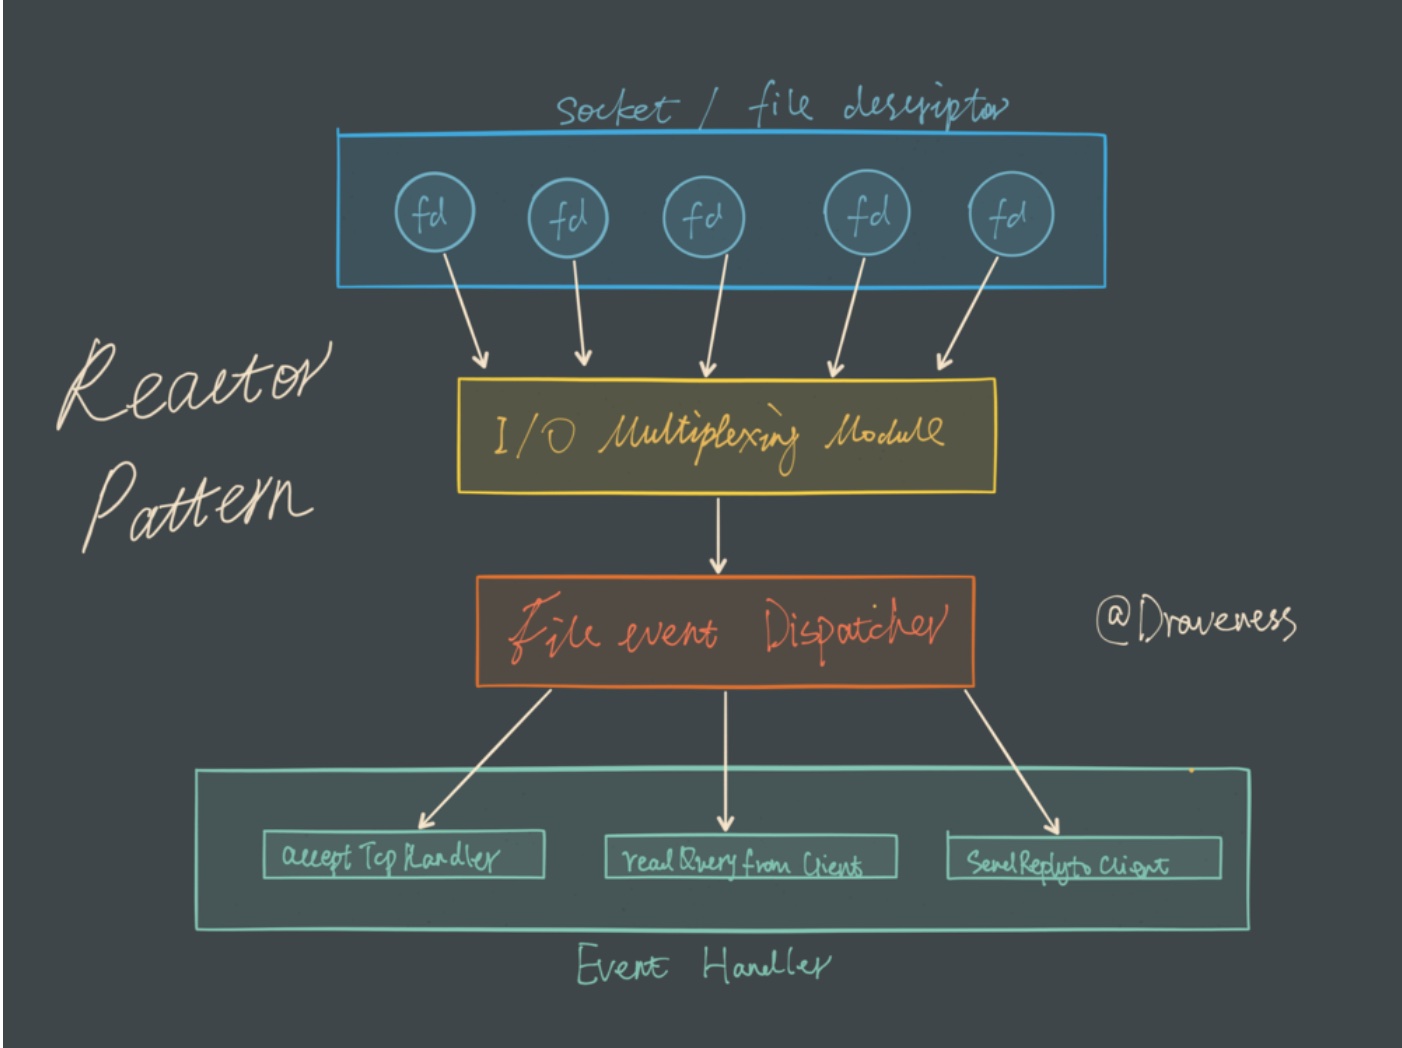 socket / file descriptor
fd fd fd fd fd
Reactor
Pattern
I/O Multiplexing Module
File event Dispatcher
@Draveness
acceptTcpHandler
readQueryfromClient
SendReplytoClient
Event Handler